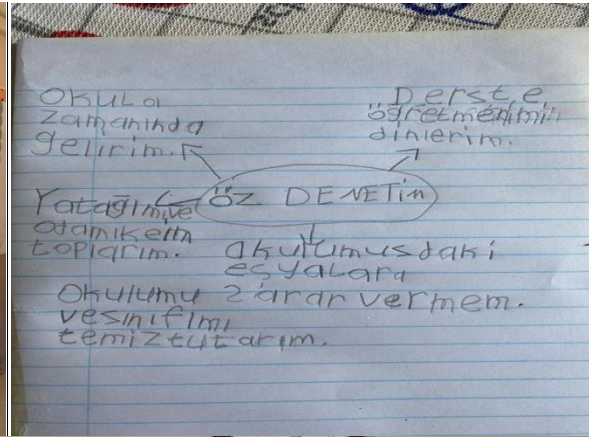 Okula
zamanında
gelirim.
Derste
öğretmenimin
dinlerim.
ÖZ DENETİM
Yatağımı ve
odamı
toplarım.
okulumusdaki
eşyalara
zarar vermem.
Okulumu
ve sınıfımı
temiz tutarım.